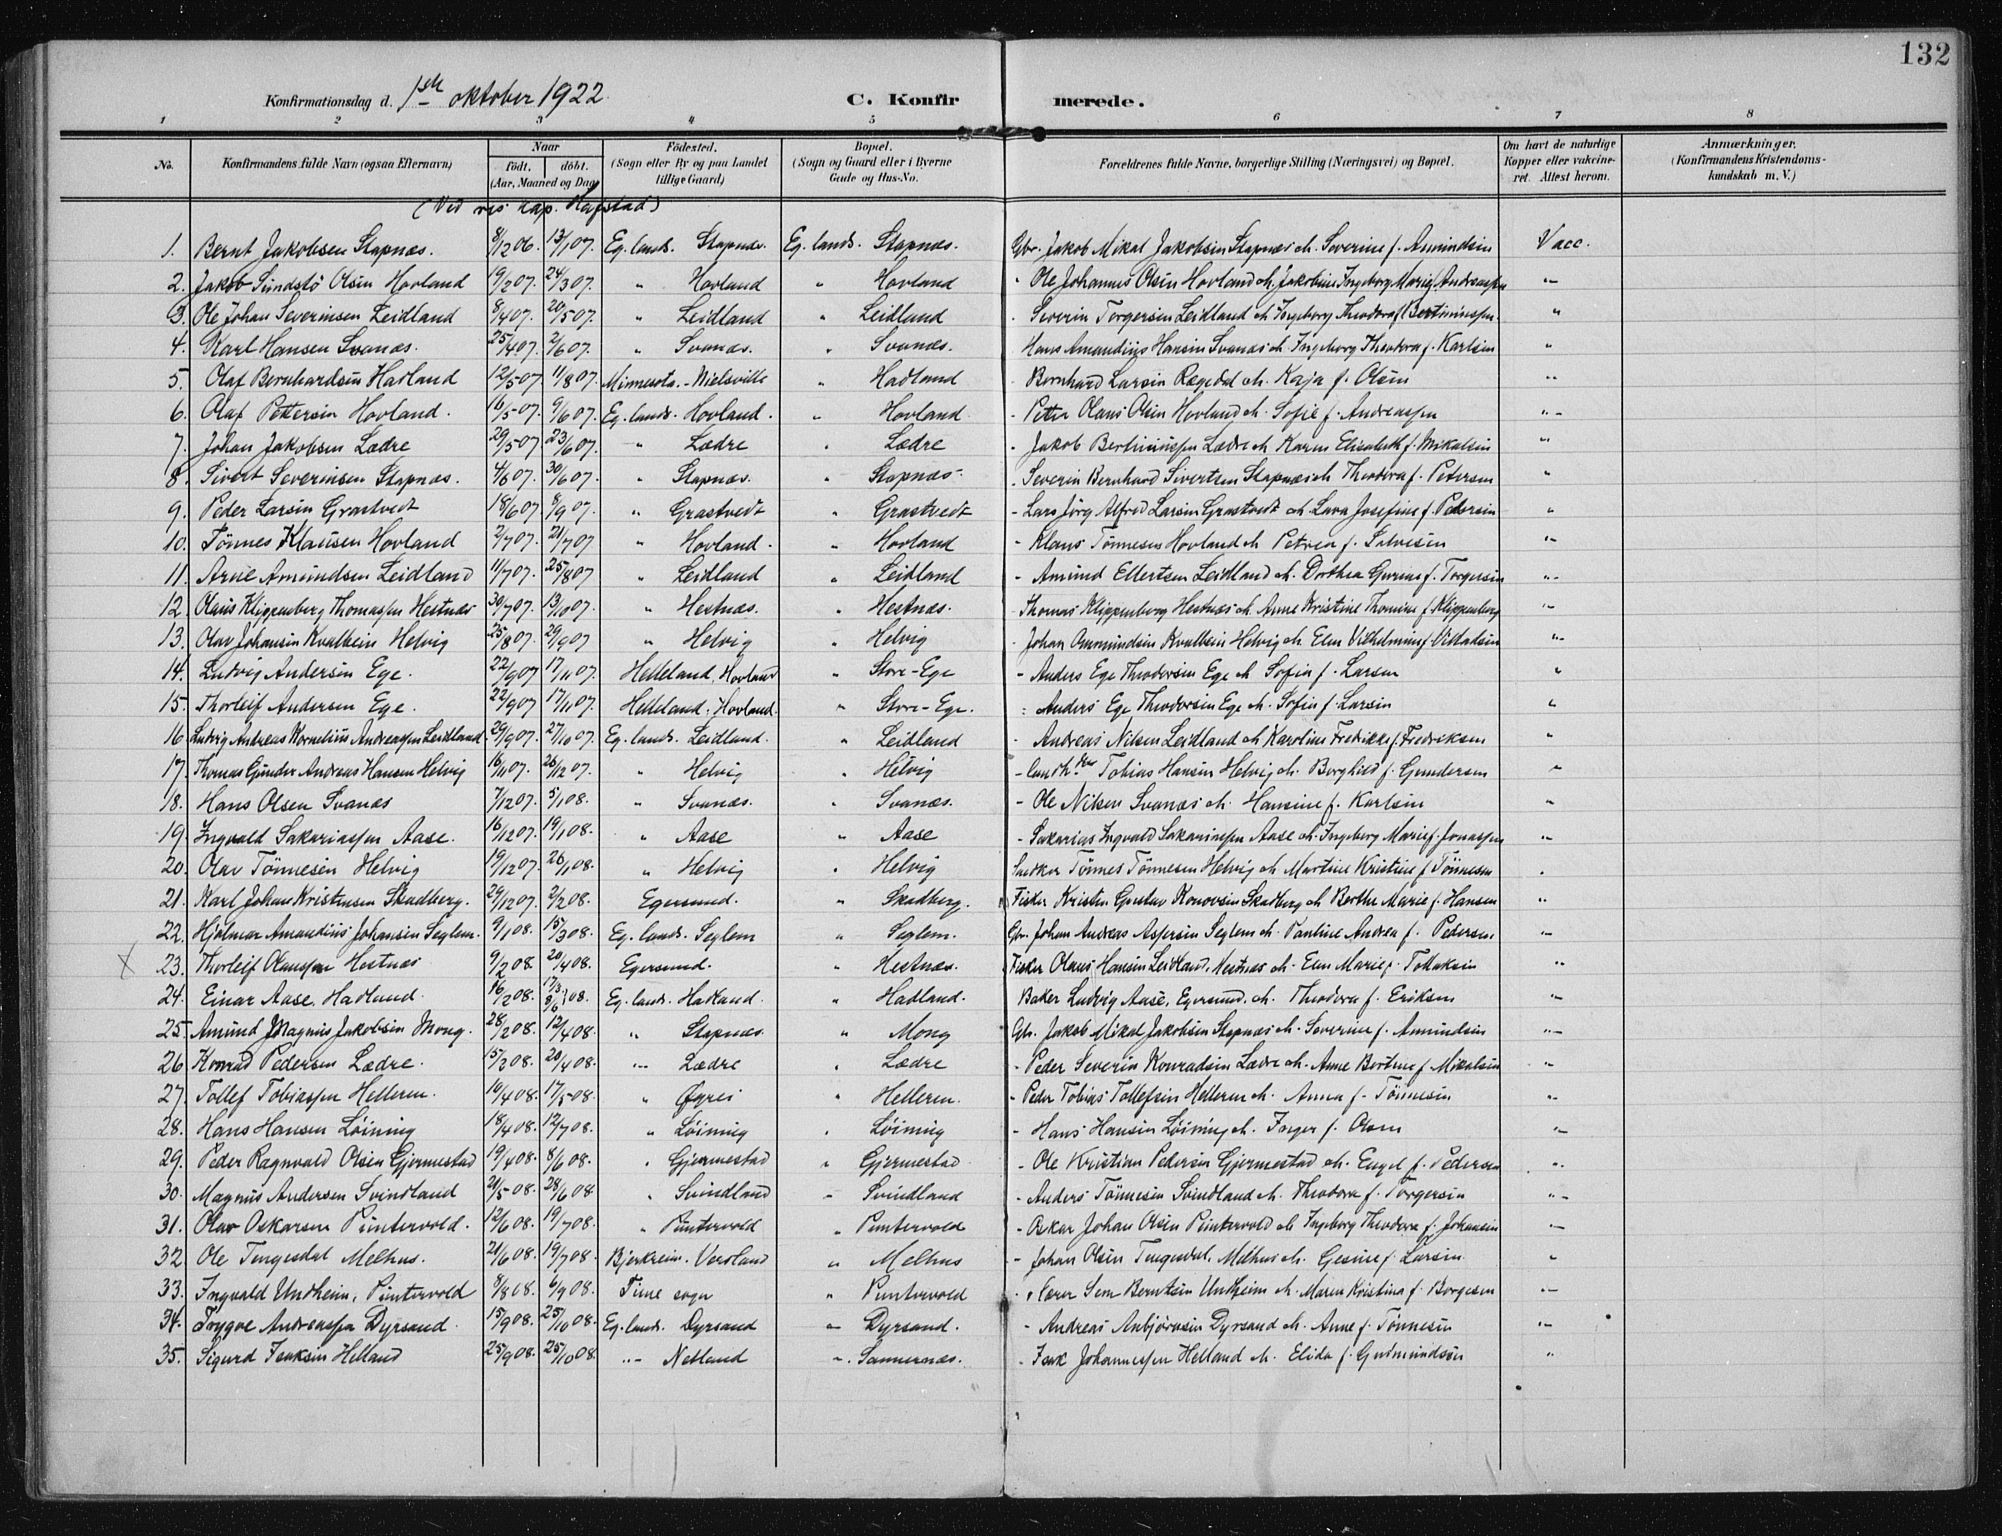 132
Konfirmationsdag d. 1ste oktober 1922. C. Konfirmerede.
1 2 3 4 5 6 7 8
No. Konfirmandens fulde Navn (ogsaa Efternavn) Naar født. døbt. (Aar, Maaned og Dag) Fødested. (Sogn eller By og paa Landet tillige Gaard) Bopæl. (Sogn og Gaard eller i Byerne Gade og Hus-No. Forældrenes fulde Navne, borgerlige Stilling (Næringsvei) og Bopæl. Om havt de naturlige Kopper eller vaccineret. Attest herom. Anmærkninger. (Konfirmandens Kristendomskundskab m. V.)
(Ved res. kap. Hafstad)
1. Bernt Jakobsen Stapnæs. 8/12 06. 13/1 07. Eg. lands. Stapnæs. Eg. lands. Stapnæs. Gbr. Jakob Mikal Jakobsen Stapnæs o h. Severine f. Amundsen Vacc.
2. Jakob Sundstö Olsen Hovland 19/2 07. 24/3 07. " Hovland " Hovland - Ole Johannes Olsen Hovland o h. Jakobine Ingeborg Marie f Andreassen "-
3. Ole Johan Severinsen Leidland 8/4 07. 20/5 07. " Leidland " Leidland - Severin Torgersen Leidland o h Ingeborg Theodora f Bertinussen. "
4. Karl Hansen Svanæs. 25/4 07. 2/6 07. " Svanæs. " Svanæs. Hans Amandius Hansen Svanæs o h. Ingeborg Theodora f. Karlsen "
5. Olaf Bernhardsen Hadland 12/5 07 11/8 07. Minnesota. - Nielsville " Hadland - Bernhard Larsen Rægedal o h. Kaja f. Olsen "
6. Olaf Pettersen Hovland. 16/5 07. 9/6 07. Eg. lands. Hovland. " Hovland. - Petter Olaus Olsen Hovland o h. Sofie f. Andreassen "-
7. Johan Jakobsen Lædre 29/5 07 23/6 07. " Lædre " Lædre - Jakob Bertinussen Lædre o h Karen Elisabeth f. Mikalsen "
8. Sivert Severinsen Stapnæs. 4/6 07. 30/6 07. " Stapnæs. " Stapnæs - Severin Bernhard Sivertsen Stapnæs o h Theodora f. Petersen "
9. Peder Larsen Grastvedt 18/6 07 8/9 07. " Grastvedt " Grastvedt - Lars Jörg Alfred Larsen Grastvedt o h. Lava Josefine f. Pedersen "
10. Tönnes Klausen Hovland 2/7 07. 21/7 07 " Hovland. " Hovland - Klaus Tönnesen Hovland o h Petrea f. Salvesen "-
11. Arne Amundsen Leidland 11/7 07. 25/8 07 " Leidland " Leidland - Amund Ellertsen Leidland o h. Dorthea Gurine f. Torgersen "-
12. Olaus Klippenberg Thomassen Hestnæs 30/7 07. 13/10 07. " Hestnæs. " Hestnæs. - Thomas Klippenberg Hestnæs o h Anne Kristine Thomine f Klippenberg "-
13. Olav Johansen Kvalbein Helvig 25/8 07. 29/9 07 " Helvig " Helvig - Johan Ommundsen Kvalbein Helvig o h. Elen Vilhelmine f. "-
14. Ludvig Andersen Ege. 22/9 07 17/11 07. Helleland, Hovland " Store-Ege - Anders Ege Theodorsen Ege o h Sofie f. Larsen "
15. Thorleif Andersen Ege. 22/9 07 17/11 07. Helleland, Hovland. " Store-Ege. - Anders Ege Theodorsen Ege o h. Sofie f Larsen "
16. Ludvig Andreas Kornelius Andreassen Leidland. 29/9 07. 27/10 07. Eg. lands. Leidland. " Leidland - Andreas Nilsen Leidland o h Karoline Fredrikke f. Fredriksen "
17. Thomas Gunder Andreas Hansen Helvig 16/11 07. 26/12 07. " Helvig " Helvig - Tobias Hansen Helvig o h. Borghild f. Gundersen "
18. Hans Olsen Svanæs 7/12 07. 5/1 08. " Svanæs. " Svanæs. - Ole Nilsen Svanæs o h. Hansine f. Karlsen "
19. Ingvald Sakariassen Aase. 16/12 07. 19/1 08. " Aase " Aase - Sakarias Ingvald Sakariassen Aase o h. Ingeborg Marie f. Jonassen "
20. Olav Tönnesen Helvig 19/12 07. 26/1 08. " Helvig " Helvig Snedker Tönnes Tönnesen Helvig o h Martine Kristine f Tönnesen "
21. Karl Johan Kristensen Skadberg. 29/12 07. 2/2 08. Egersund. " Skadberg. Fisker Kristen Gustav Skadberg o h Berthe Marie f. Hansen "
22. Hjalmar Amandius Johansen Seglem. 9/1 08. 15/3 08. Eg. lands. Seglem " Seglem. Gbr. Johan Andreas Aspersen Seglem o h. Pauline Andrea f. Pedersen. "-
X 23. Thorleif Olaussen Hestnæs 9/2 08. 20/4 08. Egersund. " Hestnæs. Fisker Olaus Hansen Leidland, Hestnæs o h. Elen Marie f. Tollaksen "
24. Einar Aase, Hadland. 16/2 08. 17/3 8/6 } 08. Eg. lands. Hadland. " Hadland. Baker Ludvig Aase, Egersund, o h. Theodora f. Eriksen "-
25. Amund Magnus Jakobsen Mong. 28/2 08. 12/4 08. " Stapnæs. " Mong Gbr. Jakob Mikal Jakobsen Stapnæs o h. Severine f. Amundsen "-
26. Konrad Pedersen Lædre. 15/2 08. 20/4 08. "- Lædre " Lædre - Peder Severin Konradsen Lædre o h. Anne Bertine f. Mikalsen "-
27. Tollef Tobiassen Helleren. 10/4 08. 17/5 08. " Øgrei " Helleren. - Peder Tobias Tollefsen Helleren o h. Anna f. Tönnesen "-
28. Hans Hansen Löining 18/4 08. 12/7 08. " Löining " Löining - Hans Hansen Löining o h. Inger f. Olsen "-
29. Peder Ragnvald Olsen Gjermestad 19/4 08. 8/6 08. " Gjermestad " Gjermestad - Ole Kristian Pedersen Gjermestad o h. Engel f. Pedersen "
30. Magnus Andersen Svindland 21/5 08. 28/6 08 " Svindland " Svindland - Anders Tönnesen Svindland o h. Theodora f. Torgersen "-
31. Olav Oskarsen Puntervold. 12/6 08. 19/7 08. " Puntervold " Puntervold - Oskar Johan Olsen Puntervold o h Ingeborg Theodora f. Johansen "-
32. Ole Tengesdal Melhus. 21/6 08. 19/7 08. Bjerkreim. Versland " Melhus - Johan Olsen Tengesdal, Melhus o h. Gesine f. Larsen. "
33. Ingvald Undheim, Puntervold 8/8 08. 6/9 08. Time sogn " Puntervold - Lærer Sem Berntsen Undheim o h. Maren Kristine f. Borgesen "-
34. Trygve Andreassen Dyrsand. 15/9 08. 25/10 08. Eg. lands. Dyrsand " Dyrsand. - Andreas Anbjörnsen Dyrsand o h. Anne f. Tönnesen "-
35. Sigurd Isaksen Helland 25/9 08. 25/10 08. "- Netland ". Sannernæs. - Isak Johannessen Helland o h. Elida f. Gudmundsen "